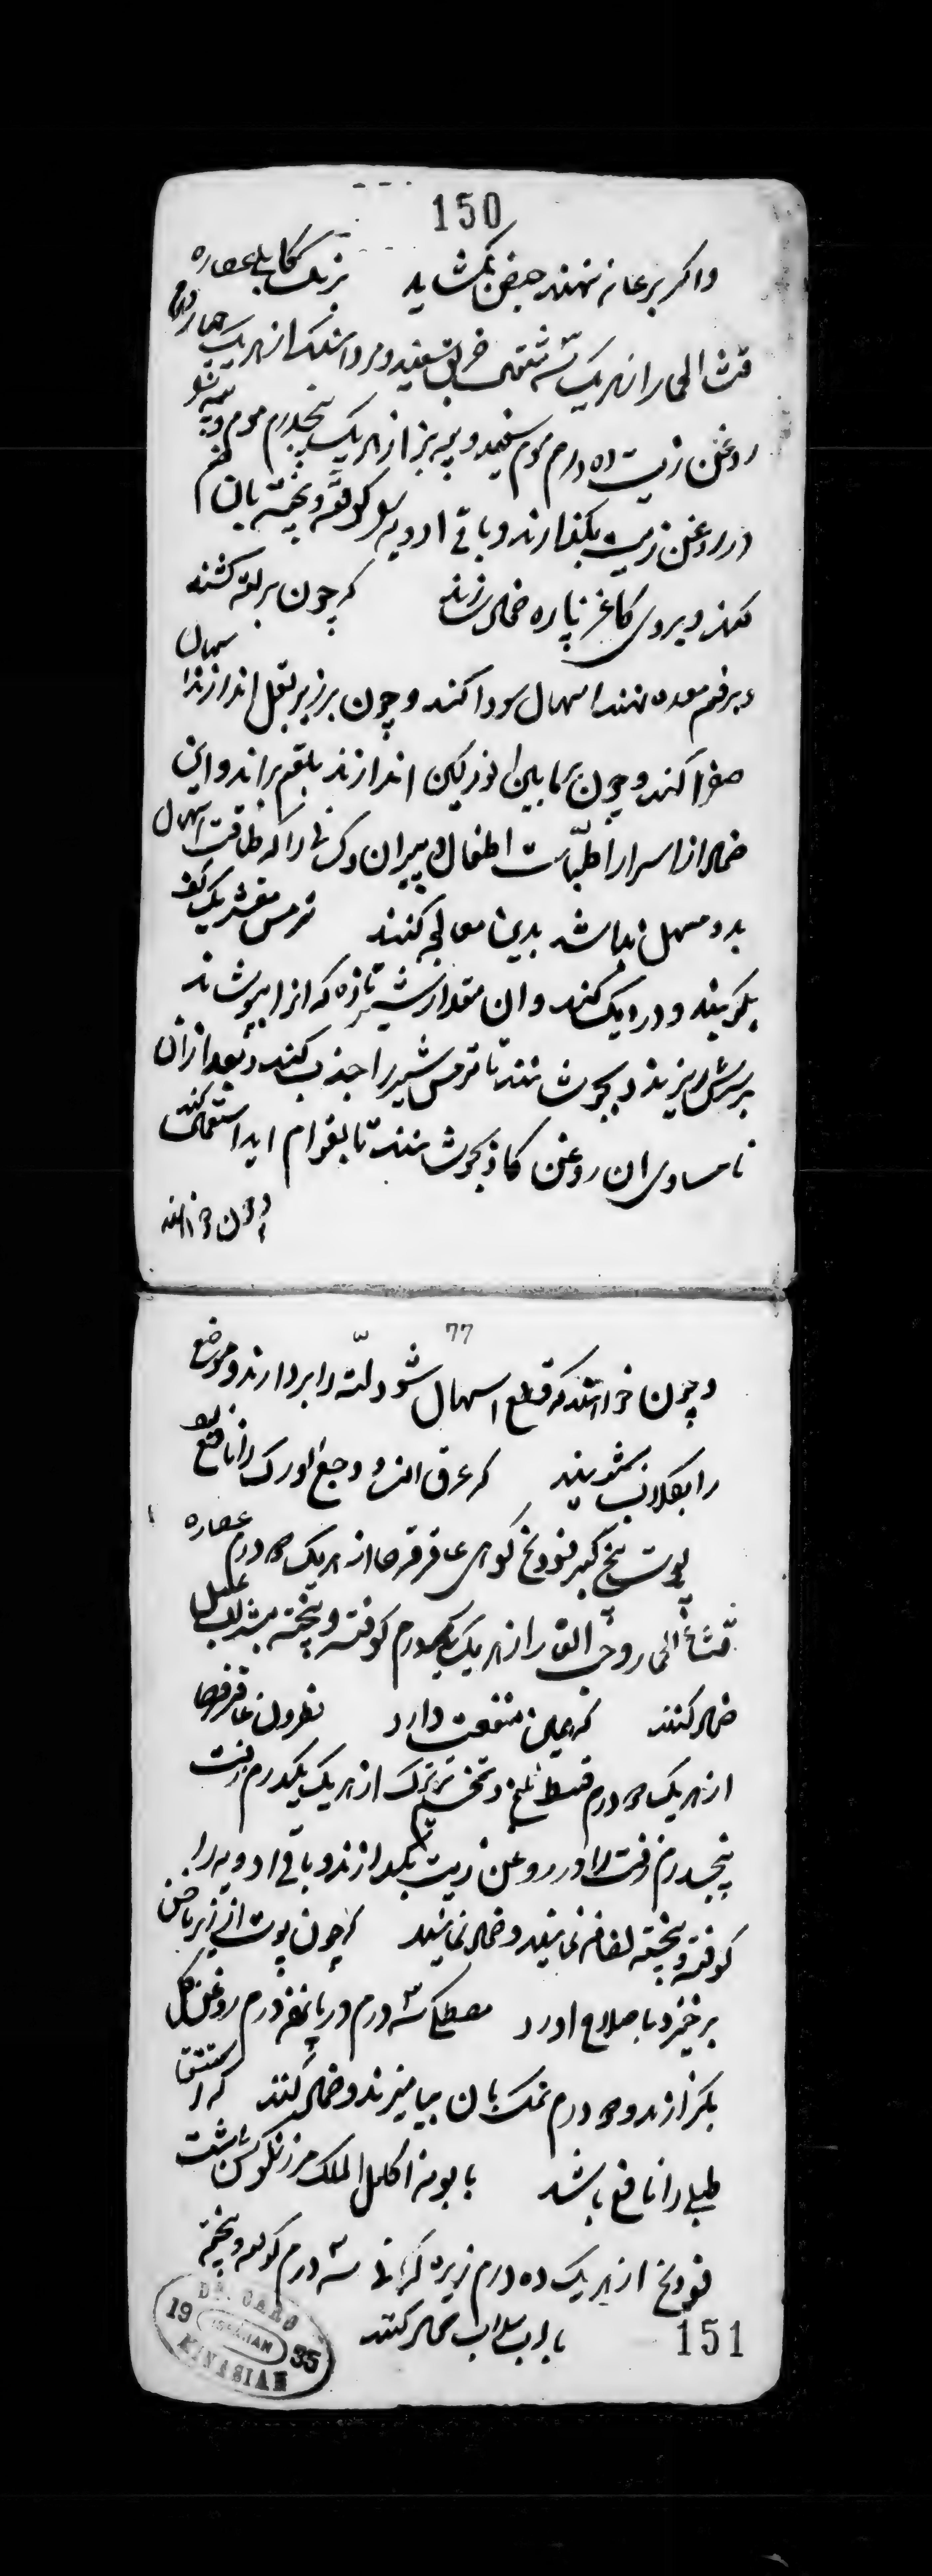 150
واکر بر عانه نهند حیض بکشاید برنک کابلی عصاره
قثا الحمار از هریک سه مثقال خربق سفید و مرداسنک از هریک چهار درم
روغن زیت ده درم موم سفید و پیه بز از هریک پنجدرم موم و پیه
در روغن زیت بکدازند و باقی ادویه کوفته و پخته بان ضم
کنند و بروی کاغذ پاره ضماد سازند که چون بر لته کشند
و بر فم معده نهند اسهال سودا کند و چون بر زیر بغل اندازند اسهال
صفرا کند و چون بمابین الورکین اندازند بلغم براند و این
ضماد از اسرار اطباست اطفال و پیران و کسانی را که طاقت اسهال
بدو مسهل نباشد بدین معالجه کنند ترمس مقشر یک کف
بکیرند و در دیک کنند و ان مقدار شیر تازه که انرا بپوشاند
بر سرش ریزند و بجوشانند تا ترمس شیر را جذب کند و بعد از آن
تا مساوی ان روغن کاو بجوشانند تا بقوام اید استعمال کنند
و چون خواهند
77
و چون خواهند که قطع اسهال شود لته را بردارند و موضع
را بکلاب بشویند که عرق النسا و وجع الورک را نافع بود
پوست بیخ کبر فودنج کوهی عاقرقرحا از هریک دو درم عصاره
قثاء الحمار و حب الغار از هریک یکدرم کوفته و پخته بشراب عسل
ضماد کنند که همین منفعت دارد نطرون عاقرقرحا
از هریک دو درم قسط تلخ و تخم ترتیزک از هریک یکدرم زفت
پنجدرم زفت را در روغن زیت بکدازند و باقی ادویه را
کوفته و پخته اضافه نمایند و ضماد نمایند که چون پوست از زیر ناخن
برخیزد باصلاح اورد مصطکی سه درم در پانزده درم روغن کل
بکدازند و دو درم نمک بان بیامیزند و ضماد کنند که استسقا
طبلی را نافع باشد بابونه اکلیل الملک مرزنکوش شبت
فودنج از هریک ده درم زیره کرمانی سه درم کوفته و پخته
باب سداب ضماد کنند
151
DR. CARO
19 ISFAHAN 35
MINASIAN